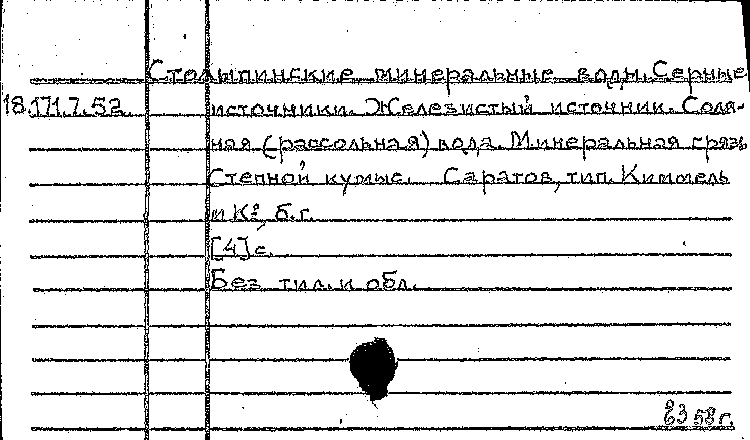 Столыпинские минеральные воды. Серные
18.171.7.52 источники. Железистый источник. Соля-
ная (рассольная) вода. Минеральная грязь
Степной кумыс. Саратов, тип. Киммель
и Кº, б.г.
[4] с.
Без тил. и обл.
58 г.